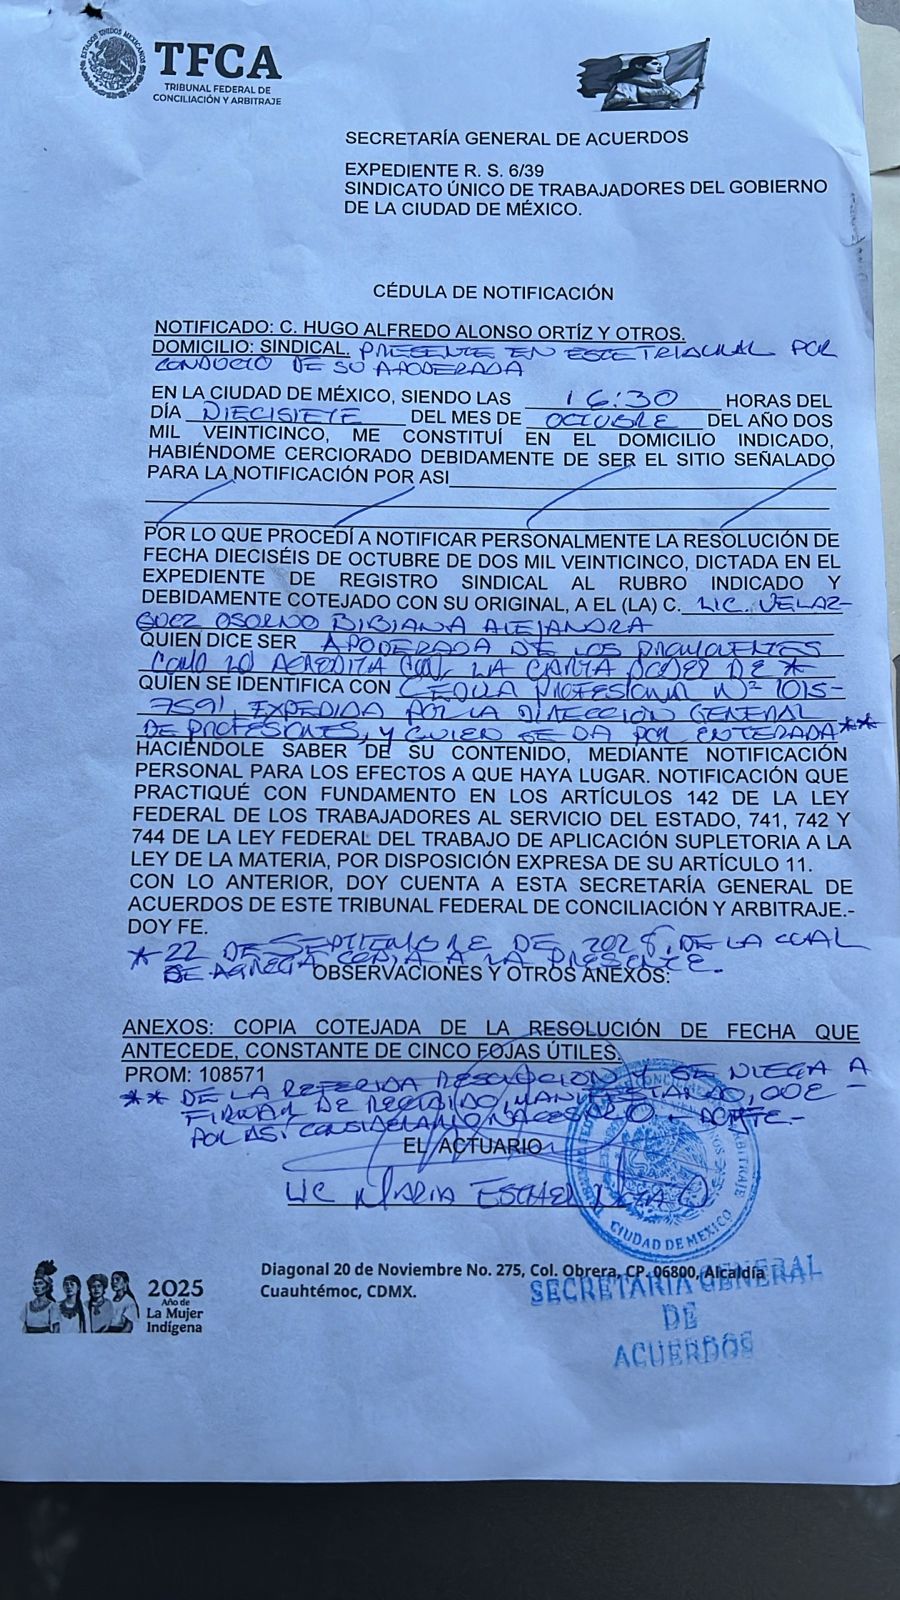 ESTADOS UNIDOS MEXICANOS
TFCA
TRIBUNAL FEDERAL DE
CONCILIACIÓN Y ARBITRAJE
SECRETARÍA GENERAL DE ACUERDOS
EXPEDIENTE R. S. 6/39
SINDICATO ÚNICO DE TRABAJADORES DEL GOBIERNO
DE LA CIUDAD DE MÉXICO.
CÉDULA DE NOTIFICACIÓN
NOTIFICADO: C. HUGO ALFREDO ALONSO ORTÍZ Y OTROS.
DOMICILIO: SINDICAL. PRESENTE EN ESTE TRIBUNAL POR
CONDUCTO DE SU APODERADA
EN LA CIUDAD DE MÉXICO, SIENDO LAS 16:30 HORAS DEL
DÍA DIECISIETE DEL MES DE OCTUBRE DEL AÑO DOS
MIL VEINTICINCO, ME CONSTITUÍ EN EL DOMICILIO INDICADO,
HABIÉNDOME CERCIORADO DEBIDAMENTE DE SER EL SITIO SEÑALADO
PARA LA NOTIFICACIÓN POR ASI
POR LO QUE PROCEDÍ A NOTIFICAR PERSONALMENTE LA RESOLUCIÓN DE
FECHA DIECISÉIS DE OCTUBRE DE DOS MIL VEINTICINCO, DICTADA EN EL
EXPEDIENTE DE REGISTRO SINDICAL AL RUBRO INDICADO Y
DEBIDAMENTE COTEJADO CON SU ORIGINAL, A EL (LA) C. LIC. VELAZ-
QUEZ OSORNO BIBIANA ALEJANDRA
QUIEN DICE SER APODERADA DE LOS PROMOVENTES
COMO LO ACREDITA CON LA CARTA PODER DE *
QUIEN SE IDENTIFICA CON CEDULA PROFESIONAL Nº 1015-
7591, EXPEDIDA POR LA DIRECCION GENERAL
DE PROFESIONES, Y QUIEN SE DA POR ENTERADA **
HACIÉNDOLE SABER DE SU CONTENIDO, MEDIANTE NOTIFICACIÓN
PERSONAL PARA LOS EFECTOS A QUE HAYA LUGAR. NOTIFICACIÓN QUE
PRACTIQUÉ CON FUNDAMENTO EN LOS ARTÍCULOS 142 DE LA LEY
FEDERAL DE LOS TRABAJADORES AL SERVICIO DEL ESTADO, 741, 742 Y
744 DE LA LEY FEDERAL DEL TRABAJO DE APLICACIÓN SUPLETORIA A LA
LEY DE LA MATERIA, POR DISPOSICIÓN EXPRESA DE SU ARTÍCULO 11.
CON LO ANTERIOR, DOY CUENTA A ESTA SECRETARÍA GENERAL DE
ACUERDOS DE ESTE TRIBUNAL FEDERAL DE CONCILIACIÓN Y ARBITRAJE.-
DOY FE.
* 22 DE SEPTIEMBRE DE 2025, DE LA CUAL
SE AGREGA COPIA A LA PRESENTE.
OBSERVACIONES Y OTROS ANEXOS:
ANEXOS: COPIA COTEJADA DE LA RESOLUCIÓN DE FECHA QUE
ANTECEDE, CONSTANTE DE CINCO FOJAS ÚTILES.
PROM: 108571
** DE LA REFERIDA RESOLUCION Y SE NIEGA A
FIRMAR DE RECIBIDO, MANIFESTANDO, QUE -
POR ASI CONSIDERARLO NECESARIO.
EL ACTUARIO
LIC MARIA ESTHER
CIUDAD DE MEXICO
SECRETARÍA GENERAL
DE
ACUERDOS
2025
Año de
La Mujer
Indígena
Diagonal 20 de Noviembre No. 275, Col. Obrera, CP. 06800, Alcaldía
Cuauhtémoc, CDMX.